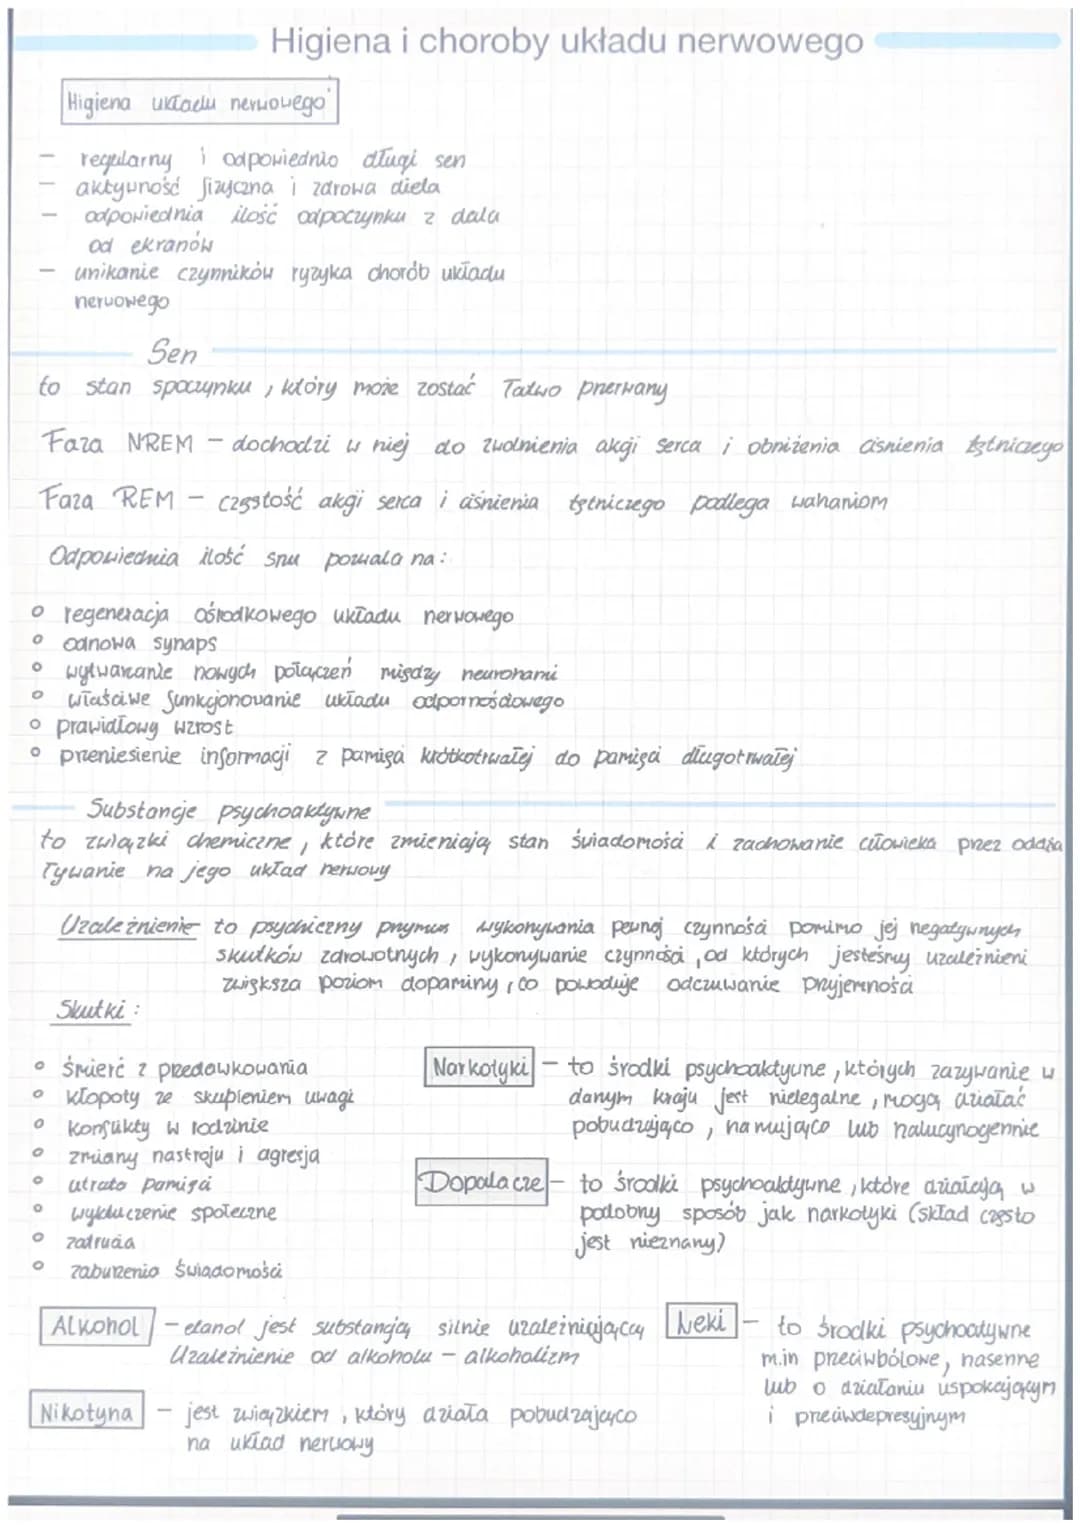 Higiena i choroby układu nerwowego
Higiena układu nerwowego
- regularny i odpowiednio długi sen
- aktywność fizyczna i zdrowa dieta
- odpowiednia ilość odpoczynku z dala
od ekranów
- unikanie czynników ryzyka chorób układu
nerwowego
Sen
to stan spoczynku, który może zostać łatwo przerwany
Faza NREM - dochodzi w niej do zwolnienia akcji serca i obniżenia ciśnienia tętniczego
Faza REM - częstość akcji serca i ciśnienia tętniczego podlega wahaniom
Odpowiednia ilość snu pozwala na:
o regeneracja ośrodkowego układu nerwowego
o odnowa synaps
o wytwarzanie nowych połączeń między neuronami
o właściwe funkcjonowanie układu odpornościowego
o prawidłowy wzrost
o przeniesienie informacji z pamięci krótkotrwałej do pamięci długotrwałej
Substancje psychoaktywne
to związki chemiczne, które zmieniają stan świadomości i zachowanie człowieka przez oddzia
ływanie na jego układ nerwowy
Uzależnienie to psychiczny przymus wykonywania pewnej czynności pomimo jej negatywnych
skutków zdrowotnych, wykonywanie czynności, od których jesteśmy uzależnieni
zwiększa poziom dopaminy, co powoduje odczuwanie przyjemności
Skutki:
o śmierć z przedawkowania
o kłopoty ze skupieniem uwagi
o konflikty w rodzinie
o zmiany nastroju i agresja
o utrata pamięci
o wykluczenie społeczne
o zatrucia
o zaburzenia świadomości
Narkotyki - to środki psychoaktywne, których zażywanie w
danym kraju jest nielegalne, mogą działać
pobudzająco, hamująco lub halucynogennie
Dopalacze - to środki psychoaktywne, które działają w
podobny sposób jak narkotyki (skład często
jest nieznany)
Alkohol - etanol jest substancją silnie uzależniającą
Uzależnienie od alkoholu - alkoholizm
Leki - to środki psychoatywne
m.in przeciwbólowe, nasenne
lub o działaniu uspokajającym
i przeciwdepresyjnym
Nikotyna - jest związkiem, który działa pobudzająco
na układ nerwowy